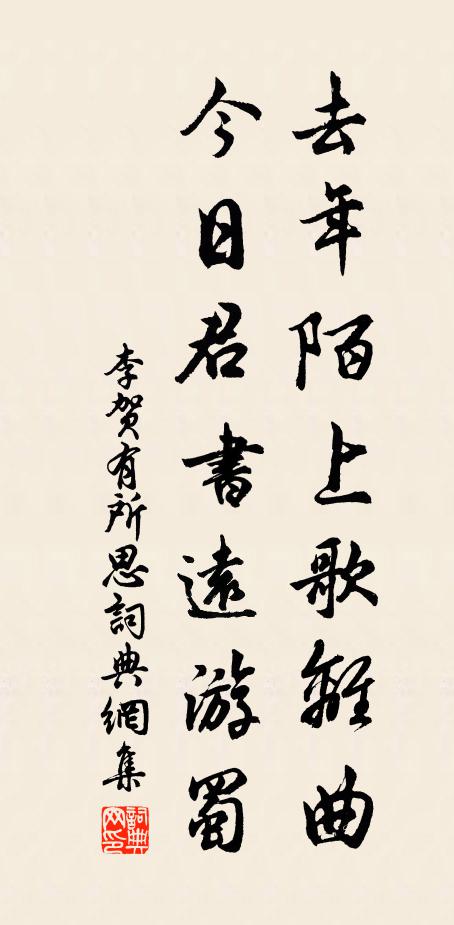 去年陌上歌離曲
今日君書遠游蜀
李賀有所思詞典網集
詞典網印